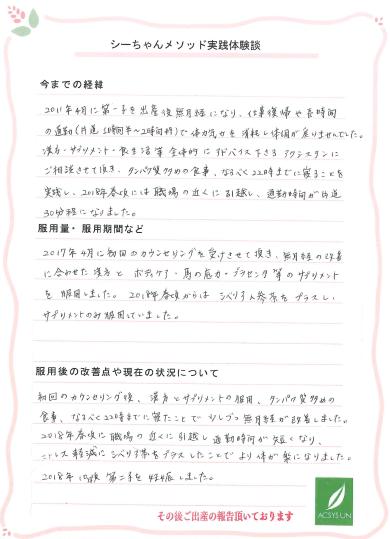 シーちゃんメソッド実践体験談
今までの経緯
2011年4月に第一子を出産後無月経になり、仕事復帰や長時間
の通勤(片道1時間半〜2時間弱)で体力気力を消耗し体調が戻りませんでした。
漢方・サプリメント・食生活等全体的にアドバイス下さるアクシスアンに
ご相談させて頂き、タンパク質多めの食事、なるべく22時までに寝ることを
実践し、2018年春頃には職場の近くに引越し、通勤時間が片道
30分程になりました。
服用量・服用期間など
2017年4月に初回のカウンセリングを受けさせて頂き、無月経の改善
に合わせた漢方と ボディケア・馬の底力・プラセンタ等のサプリメント
を服用しました。2018年春頃からはシベリア人参茶をプラスし、
サプリメントのみ服用していました。
服用後の改善点や現在の状況について
初回のカウンセリング後、漢方とサプリメントの服用、タンパク質多めの
食事、なるべく22時までに寝たことで少しづつ無月経が改善しました。
2018年春頃に職場の近くに引越し通勤時間が短くなり、
ストレス軽減にシベリア茶をプラスしたことでより体が楽になりました。
2018年 頃第二子を妊娠しました。
その後ご出産の報告頂いております
ACSYSUN